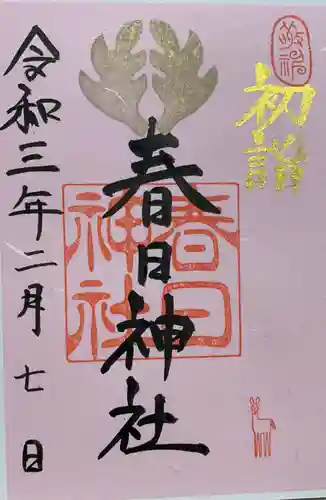 敬祝
初詣
春日神社
春日神社
令和三年二月七日